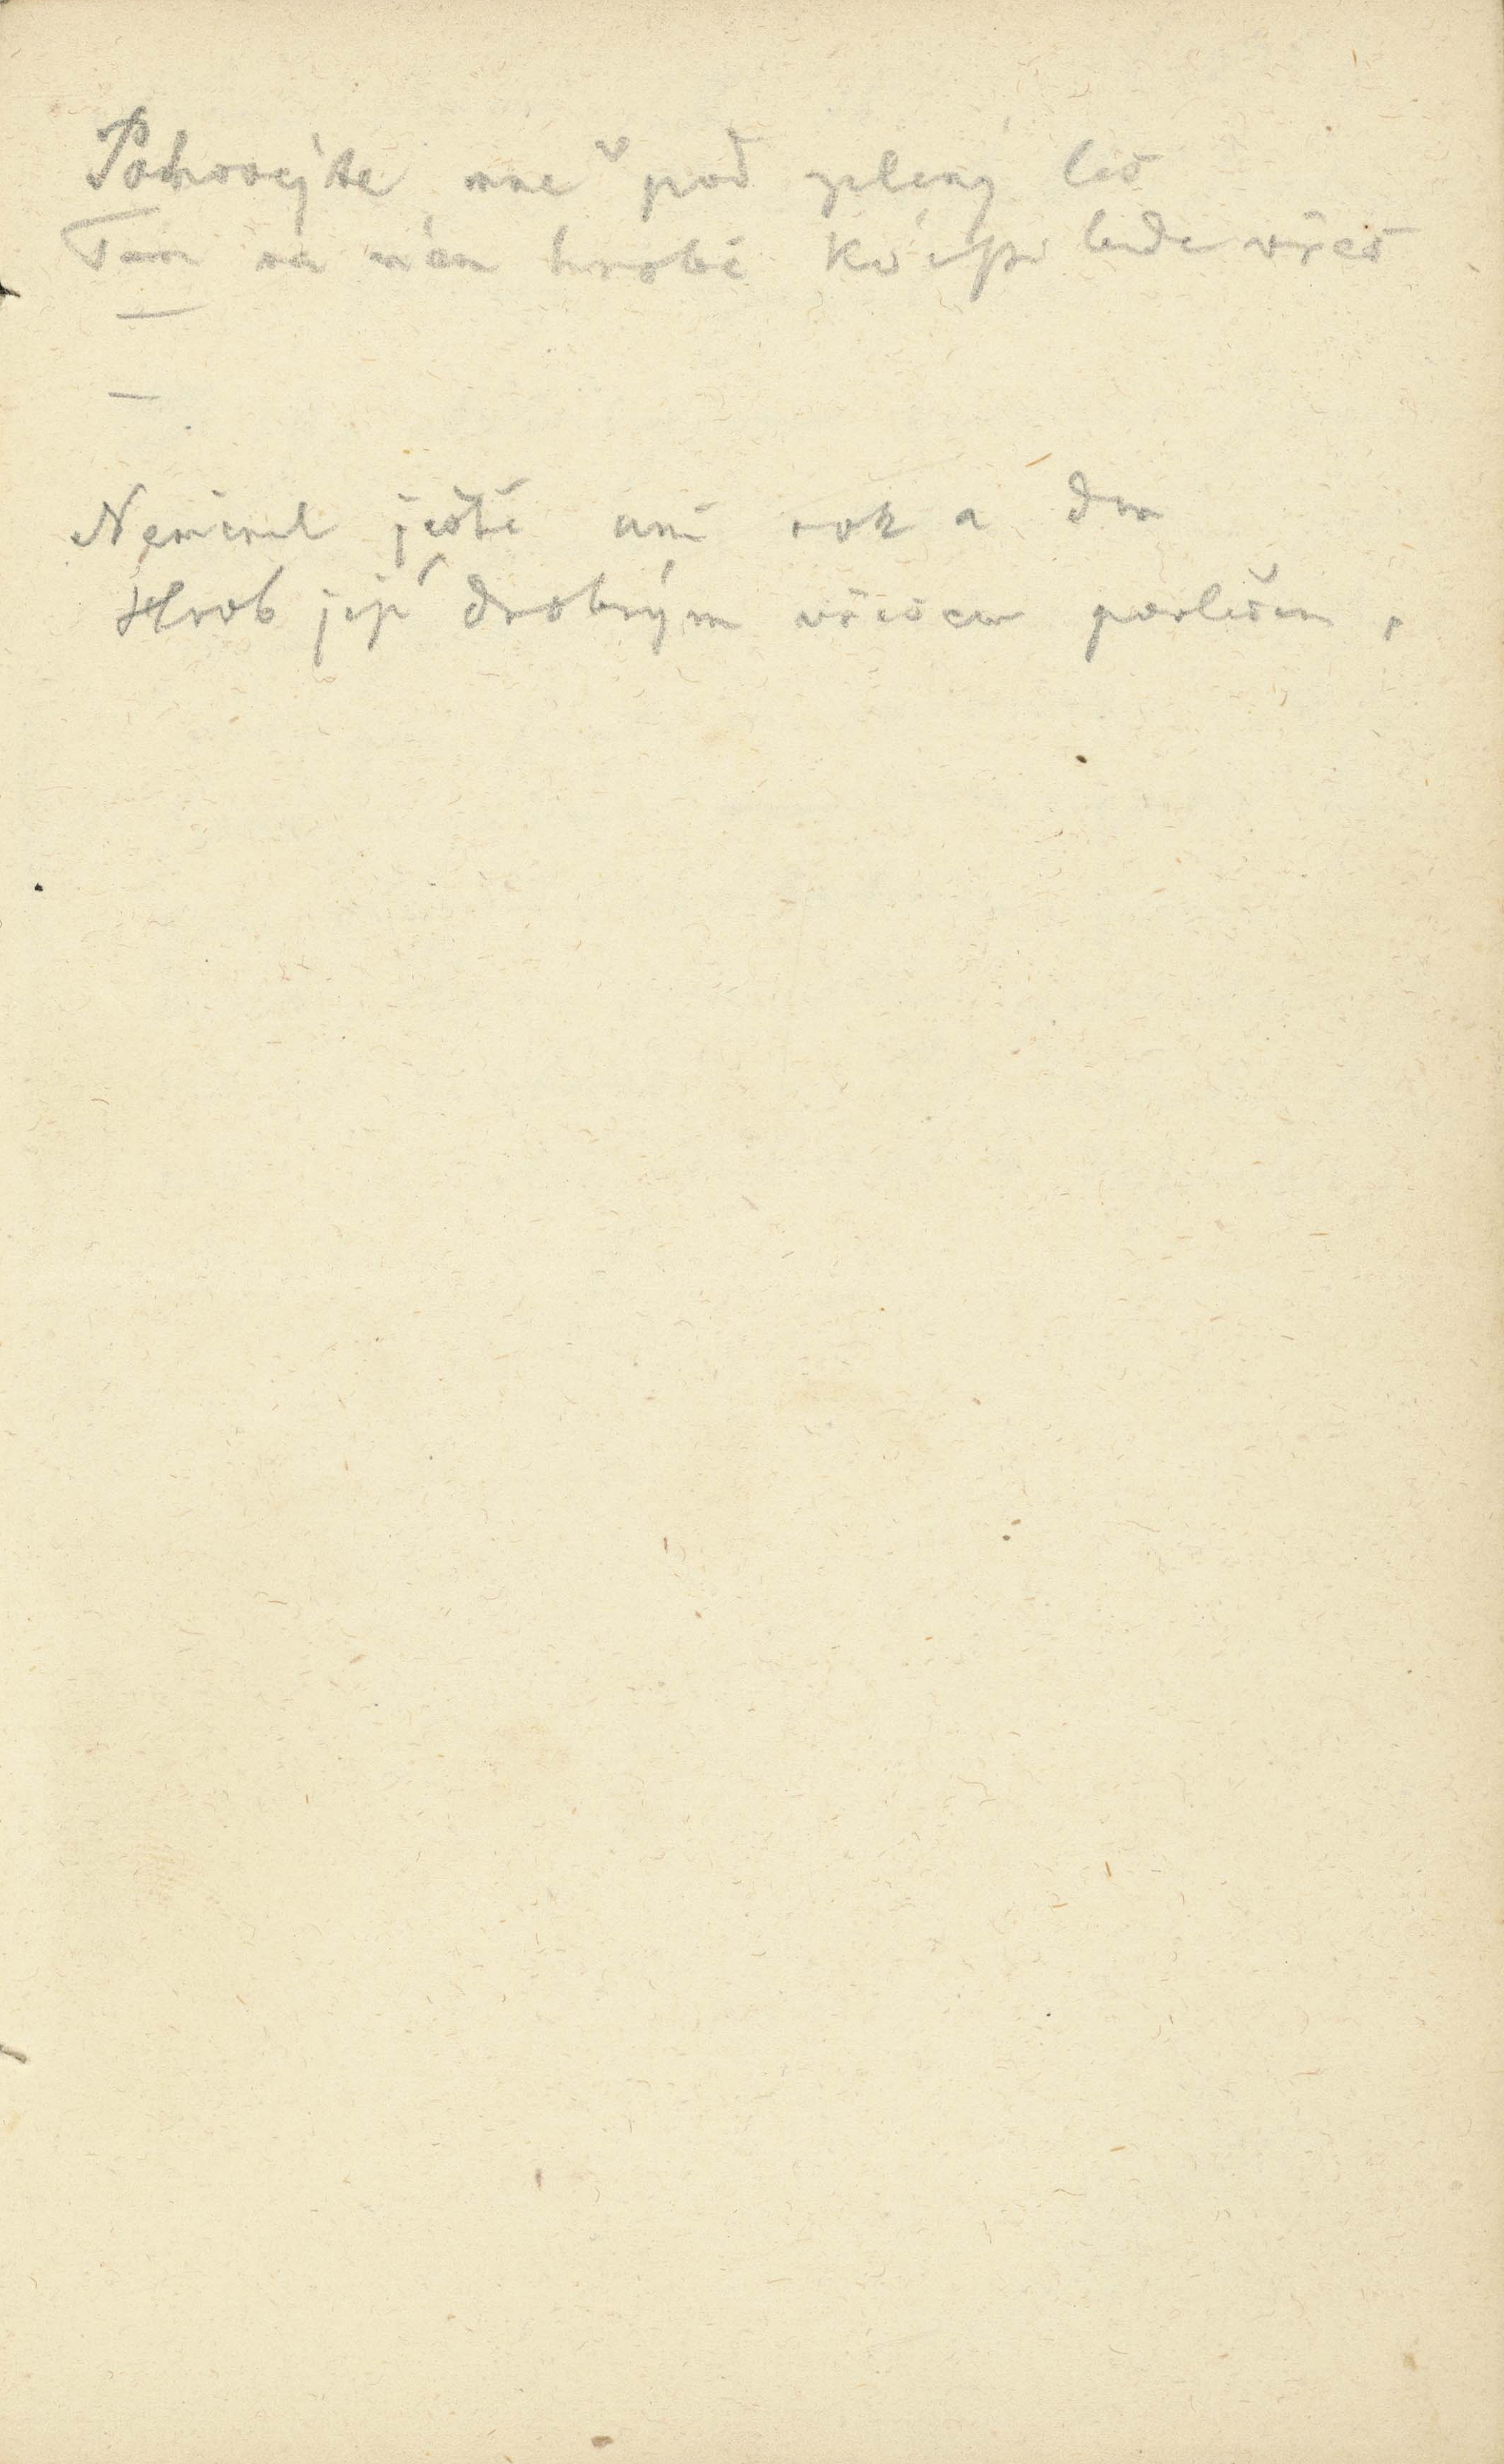 Pochovejte mne v pod zelený les
Tam na mém hrobě kvésti bude vřes
—
—
Neminul ještě ani rok a den
Hrob její drobným vřesem povlečen,